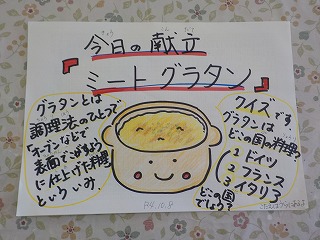 今日の献立
『ミートグラタン』
グラタンとは
調理法のひとつで
「オーブンなどで
表面でこがすよう
に仕上げた料理」
といういみ。
クイズです
グラタンは
どこの国の料理?
1 ドイツ
2 フランス
3 イタリア
どこの国
でしょう?
R4.10.8